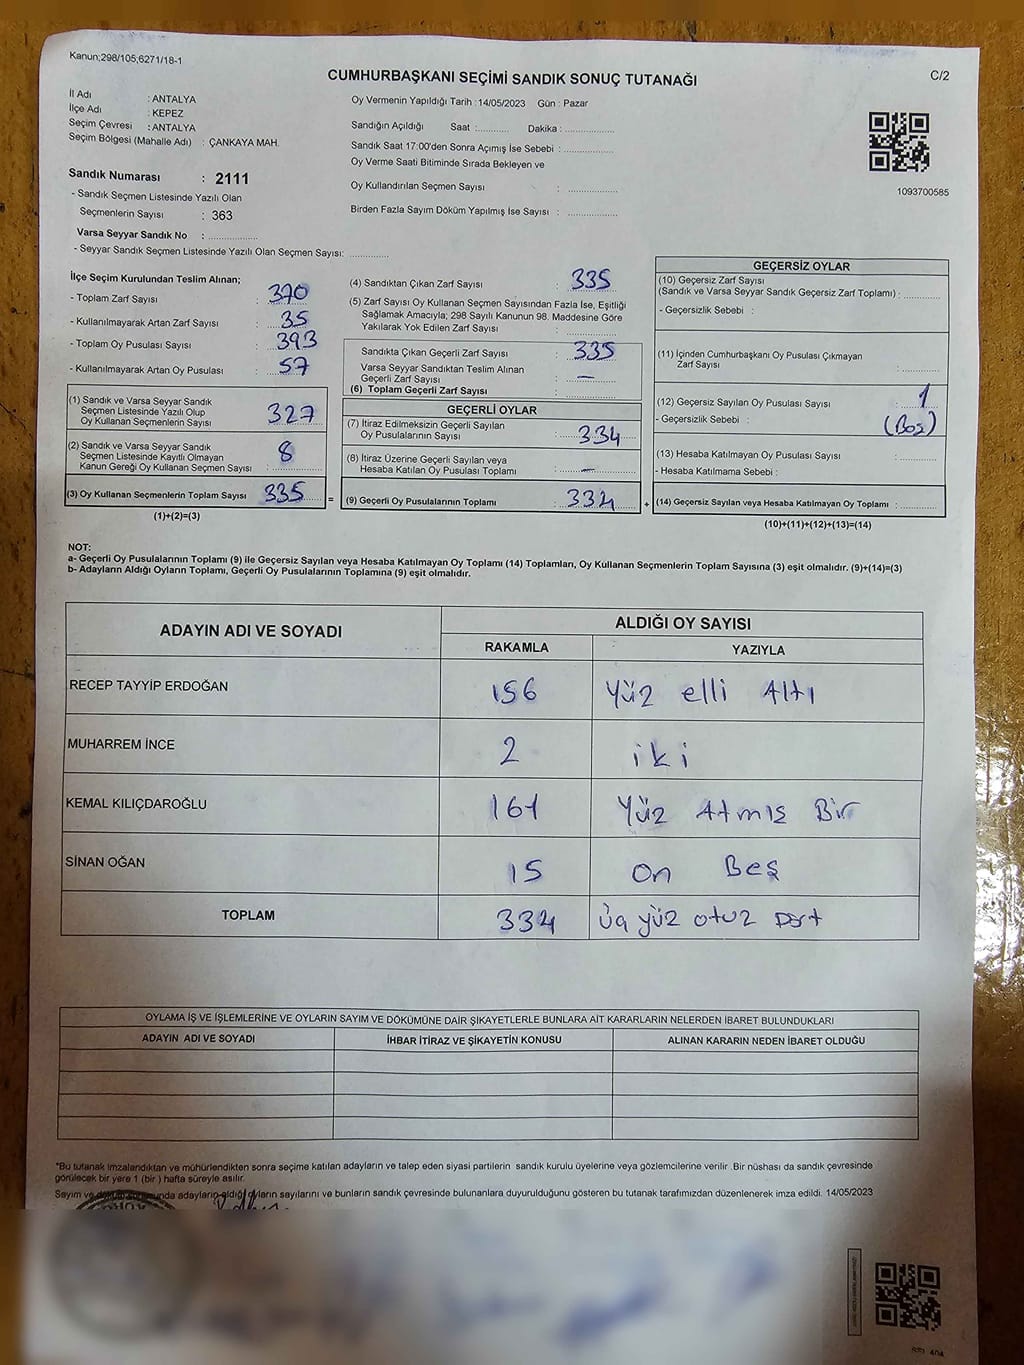 Kanun;298/105;6271/18-1
CUMHURBAŞKANI SEÇİMİ SANDIK SONUÇ TUTANAĞI
C/2
İl Adı : ANTALYA
İlçe Adı : KEPEZ
Seçim Çevresi : ANTALYA
Seçim Bölgesi (Mahalle Adı) : ÇANKAYA MAH.
Sandık Numarası : 2111
- Sandık Seçmen Listesinde Yazılı Olan
Seçmenlerin Sayısı : 363
Varsa Seyyar Sandık No : ................
- Seyyar Sandık Seçmen Listesinde Yazılı Olan Seçmen Sayısı: ............
Oy Vermenin Yapıldığı Tarih : 14/05/2023 Gün : Pazar
Sandığın Açıldığı Saat :........... Dakika : ................
Sandık Saat 17:00'den Sonra Açımış İse Sebebi : ................
Oy Verme Saati Bitiminde Sırada Bekleyen ve
Oy Kullandırılan Seçmen Sayısı : ................
Birden Fazla Sayım Döküm Yapılmış İse Sayısı : ................
1093700585
İlçe Seçim Kurulundan Teslim Alınan;
- Toplam Zarf Sayısı : 370
- Kullanılmayarak Artan Zarf Sayısı : 35
- Toplam Oy Pusulası Sayısı : 393
- Kullanılmayarak Artan Oy Pusulası : 57
(1) Sandık ve Varsa Seyyar Sandık
Seçmen Listesinde Yazılı Olup
Oy Kullanan Seçmenlerin Sayısı : 327
(2) Sandık ve Varsa Seyyar Sandık
Seçmen Listesinde Kayıtlı Olmayan
Kanun Gereği Oy Kullanan Seçmen Sayısı : 8
(3) Oy Kullanan Seçmenlerin Toplam Sayısı 335 =
(1)+(2)=(3)
(4) Sandıktan Çıkan Zarf Sayısı : 335
(5) Zarf Sayısı Oy Kullanan Seçmen Sayısından Fazla İse, Eşitliği
Sağlamak Amacıyla; 298 Sayılı Kanunun 98. Maddesine Göre
Yakılarak Yok Edilen Zarf Sayısı : ................
Sandıkta Çıkan Geçerli Zarf Sayısı : 335
Varsa Seyyar Sandıktan Teslim Alınan
Geçerli Zarf Sayısı : —
(6) Toplam Geçerli Zarf Sayısı
GEÇERLİ OYLAR
(7) İtiraz Edilmeksizin Geçerli Sayılan
Oy Pusulalarının Sayısı : 334
(8) İtiraz Üzerine Geçerli Sayılan veya
Hesaba Katılan Oy Pusulası Toplamı : —
(9) Geçerli Oy Pusulalarının Toplamı 334 +
GEÇERSİZ OYLAR
(10) Geçersiz Zarf Sayısı
(Sandık ve Varsa Seyyar Sandık Geçersiz Zarf Toplamı) : ............
- Geçersizlik Sebebi :
(11) İçinden Cumhurbaşkanı Oy Pusulası Çıkmayan
Zarf Sayısı : ............
(12) Geçersiz Sayılan Oy Pusulası Sayısı : 1
- Geçersizlik Sebebi : (Boş)
(13) Hesaba Katılmayan Oy Pusulası Sayısı : ............
- Hesaba Katılmama Sebebi :
(14) Geçersiz Sayılan veya Hesaba Katılmayan Oy Toplamı : ............
(10)+(11)+(12)+(13)=(14)
NOT:
a- Geçerli Oy Pusulalarının Toplamı (9) ile Geçersiz Sayılan veya Hesaba Katılmayan Oy Toplamı (14) Toplamları, Oy Kullanan Seçmenlerin Toplam Sayısına (3) eşit olmalıdır. (9)+(14)=(3)
b- Adayların Aldığı Oyların Toplamı, Geçerli Oy Pusulalarının Toplamına (9) eşit olmalıdır.
ADAYIN ADI VE SOYADI ALDIĞI OY SAYISI
RAKAMLA YAZIYLA
RECEP TAYYİP ERDOĞAN 156 Yüz elli Altı
MUHARREM İNCE 2 iki
KEMAL KILIÇDAROĞLU 161 Yüz Atmış Bir
SİNAN OĞAN 15 on Beş
TOPLAM 334 üç yüz otuz Dört
OYLAMA İŞ VE İŞLEMLERİNE VE OYLARIN SAYIM VE DÖKÜMÜNE DAİR ŞİKAYETLERLE BUNLARA AİT KARARLARIN NELERDEN İBARET BULUNDUKLARI
ADAYIN ADI VE SOYADI İHBAR İTİRAZ VE ŞİKAYETİN KONUSU ALINAN KARARIN NEDEN İBARET OLDUĞU
*Bu tutanak imzalandıktan ve mühürlendikten sonra seçime katılan adayların ve talep eden siyasi partilerin sandık kurulu üyelerine veya gözlemcilerine verilir. Bir nüshası da sandık çevresinde
görülecek bir yere 1 (bir) hafta süreyle asılır.
Sayım ve döküm sonunda adayların aldığı oyların sayılarını ve bunların sandık çevresinde bulunanlara duyurulduğunu gösteren bu tutanak tarafımızdan düzenlenerek imza edildi. 14/05/2023